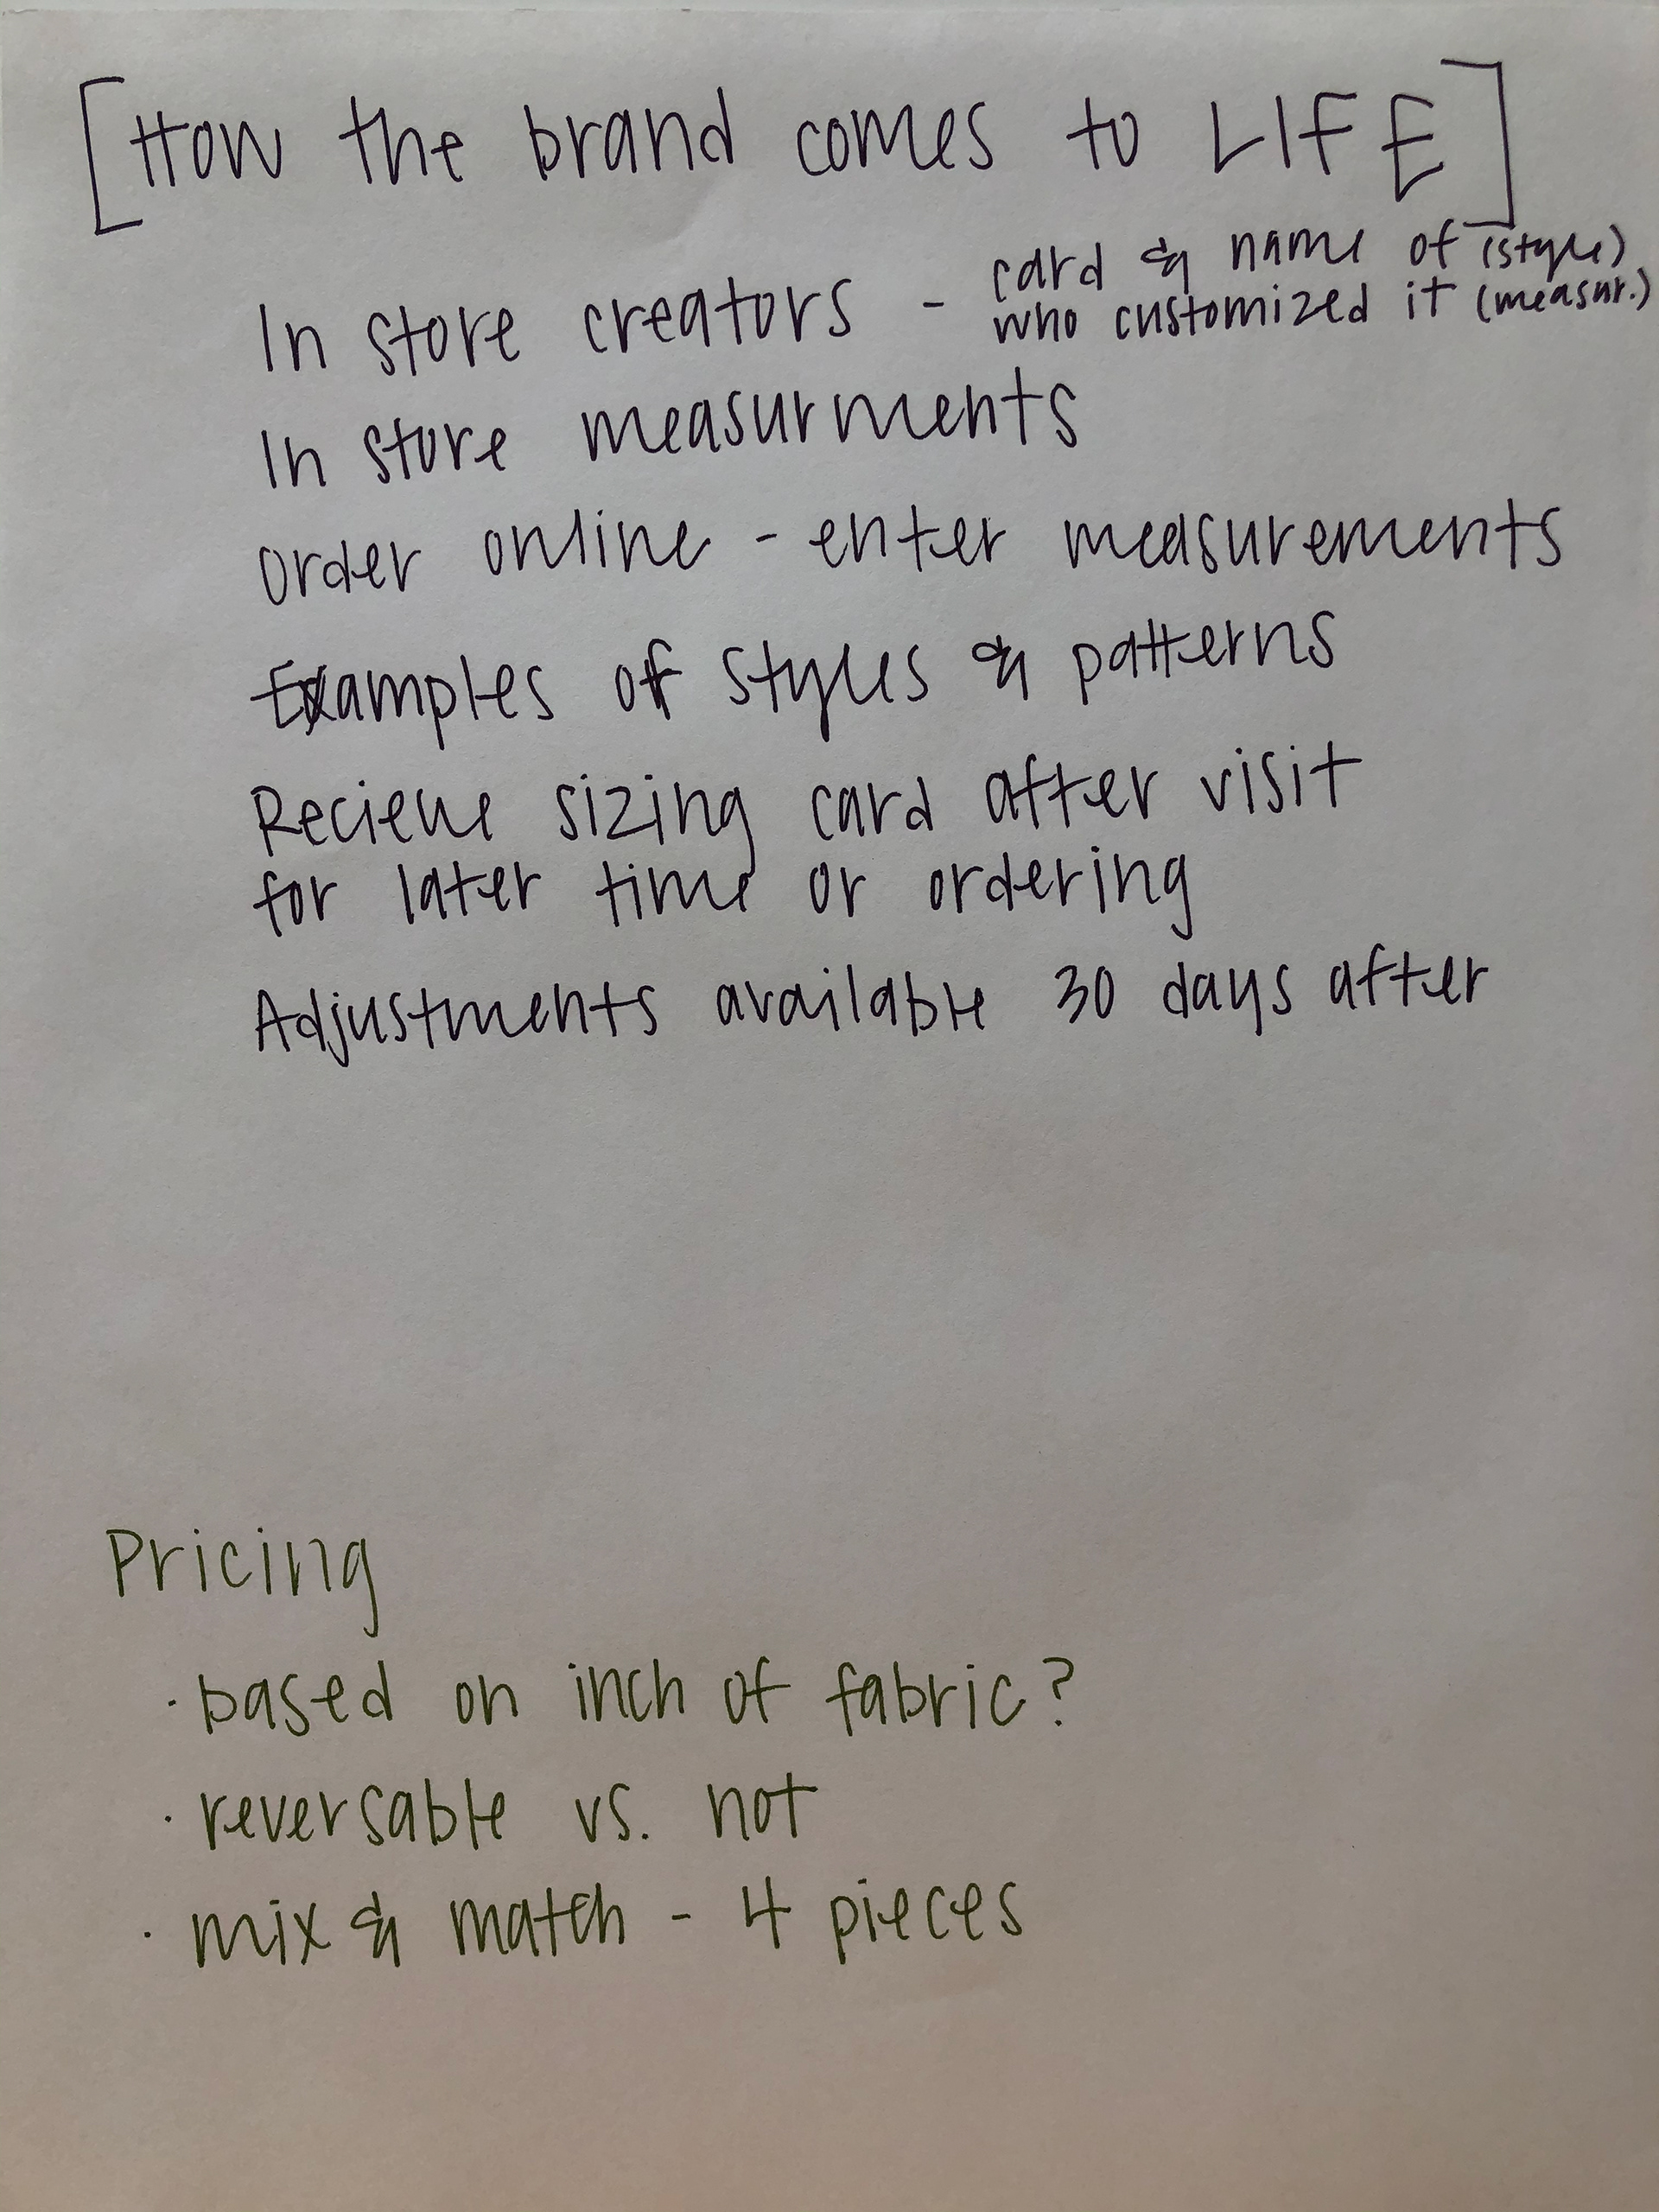 [How the brand comes to LIFE]
In store creators - card & name of (style)
who customized it (measur.)
In store measurments
order online - enter measurements
Examples of styles & patterns
Recieve sizing card after visit
for later time or ordering
Adjustments available 30 days after
Pricing
· based on inch of fabric?
· reversable vs. not
· mix & match - 4 pieces